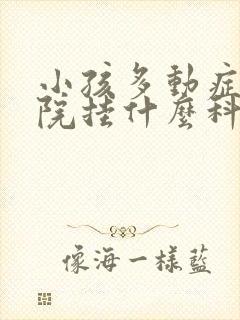 小孩多動症
院挂什麼科
像海一樣藍